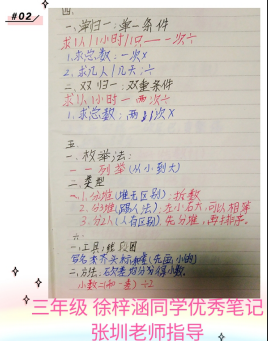 #02
四.
一、单归一:单一条件
求1人/1小时/1口——一次÷
1.求总数:一次×
2.求几人/几天:÷
二、双归一:双重条件
求1人1小时一两次÷
1.求总数:两次×
五.
一、枚举法:
一一列举(从小到大)
二、类型
1.分堆(堆无区别):拆数
2.分3堆(踢人法):左小右大,可以相等
3.分2人(人有区别).先分堆,再排序。
六.
一、工具:线段图
写名 齐头 标 (先画小的)
二、方法:
小数=(和一差)÷2
三年级 徐梓涵同学优秀笔记
张圳老师指导